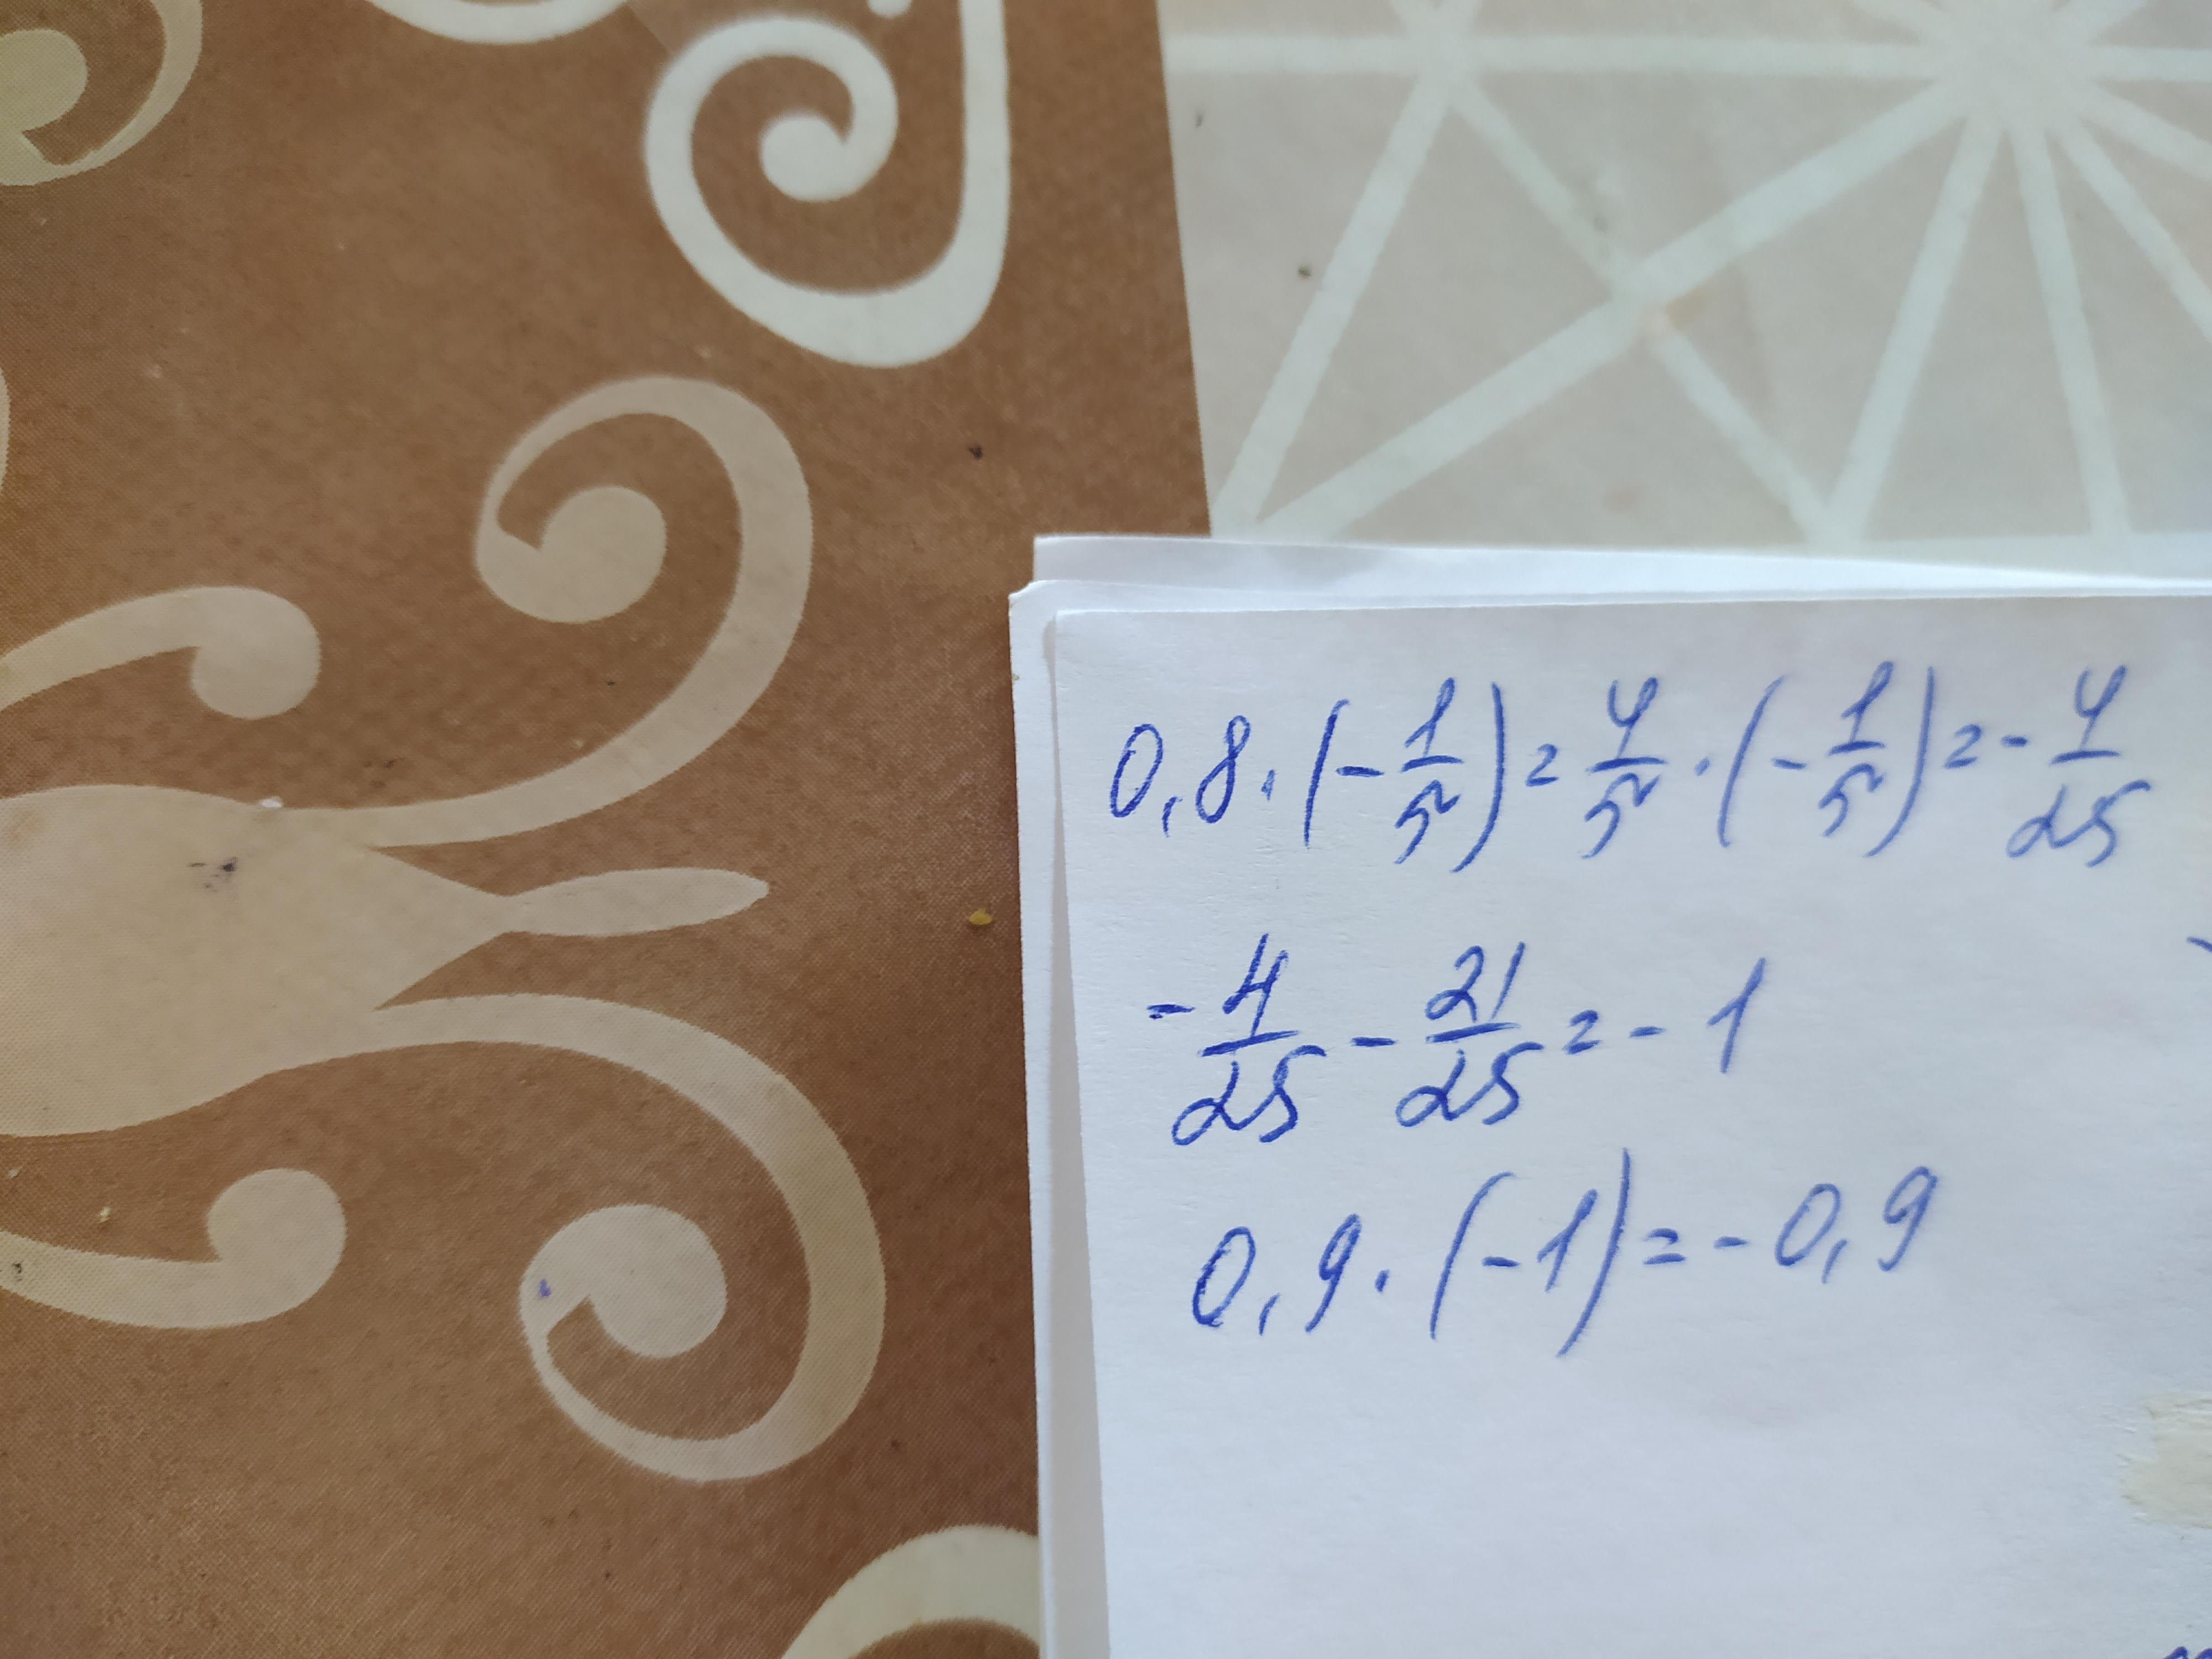 0,8 · (-1/5) = 4/5 · (-1/5) = -4/25
-4/25 - 21/25 = -1
0,9 · (-1) = -0,9